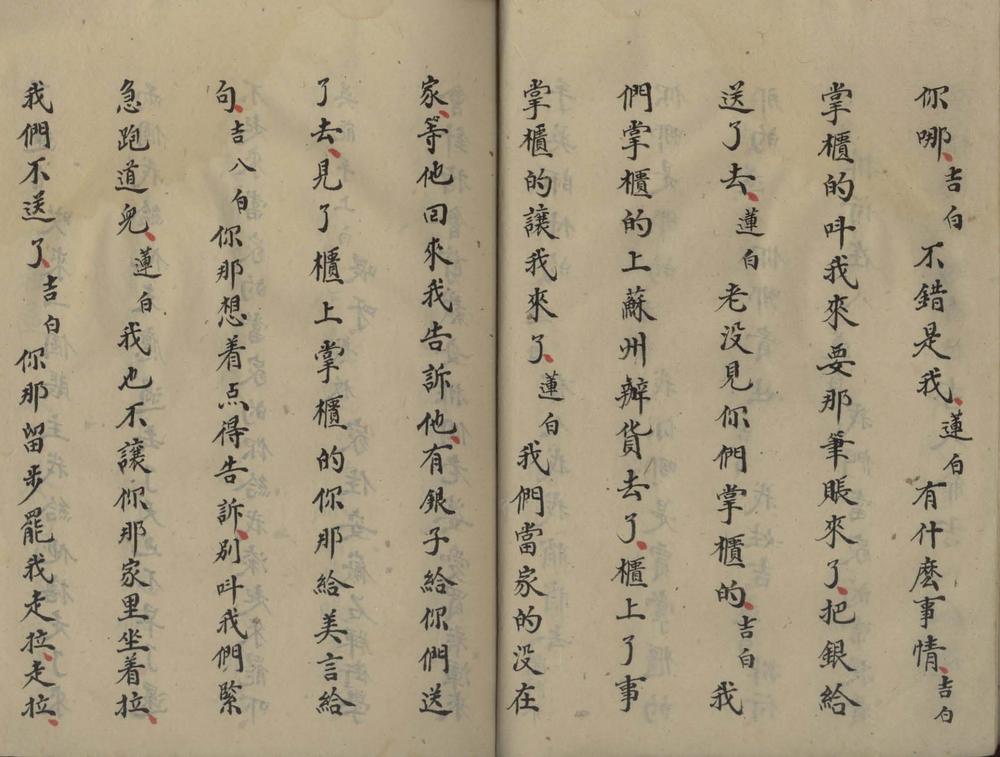 你哪、吉白不錯是我、蓮白有什麼事情、吉白
掌櫃的叫我來要那筆賬來了、把銀給
送了去、蓮白老没見你們掌櫃的、吉白我
們掌櫃的上蘇州辦貨去了、櫃上了事
掌櫃的讓我來了、蓮白我們當家的没在
家、等他回來我告訴他、有銀子給你們送
了去、見了櫃上掌櫃的你那給美言給
句、吉八白你那想着点得告訴、别叫我們緊
急跑道兒、蓮白我也不讓你那家里坐着拉、
我們不送了、吉白你那留步罷我走拉、走拉、